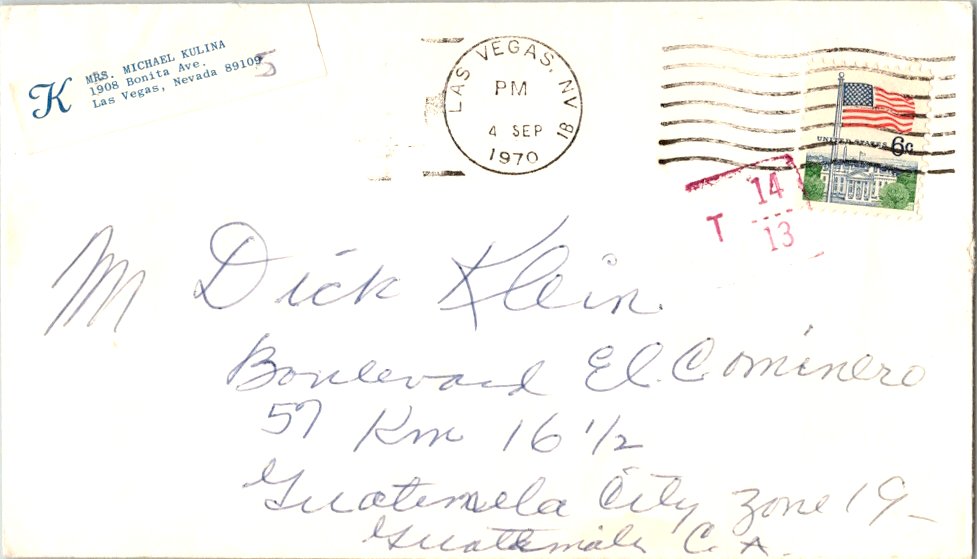 K
MRS. MICHAEL KULINA
1908 Bonita Ave.
Las Vegas, Nevada 89109
5
LAS VEGAS, NV
PM
4 SEP
1970
18
UNITED STATES 6c
T 14
13
Mr Dick Klein
Boulevard El Cominero
57 Km 16 1/2
Guatemela City Zone 19
Guatemala C. A.